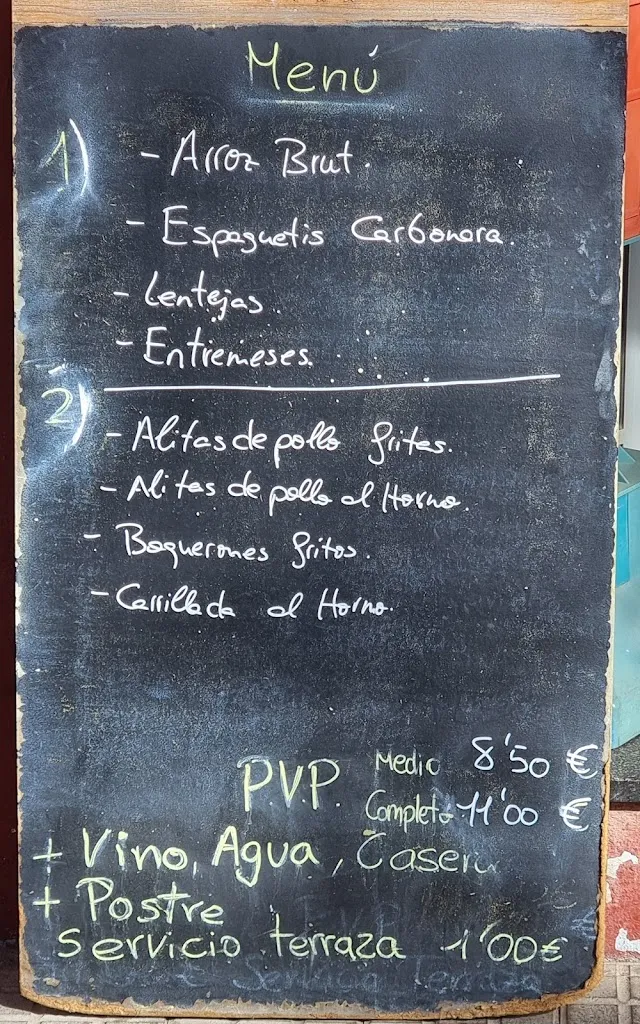 Menú
1) - Arroz Brut.
- Espaguetis Carbonara.
- Lentejas.
- Entremeses.
2) - Alitas de pollo fritas.
- Alitas de pollo al Horno.
- Boquerones fritos.
- Carrillada al Horno.
P.V.P. Medio 8'50 €
Completo 11'00 €
+ Vino, Agua, Casera
+ Postre
servicio terraza 1'00€
Servicio Terraza